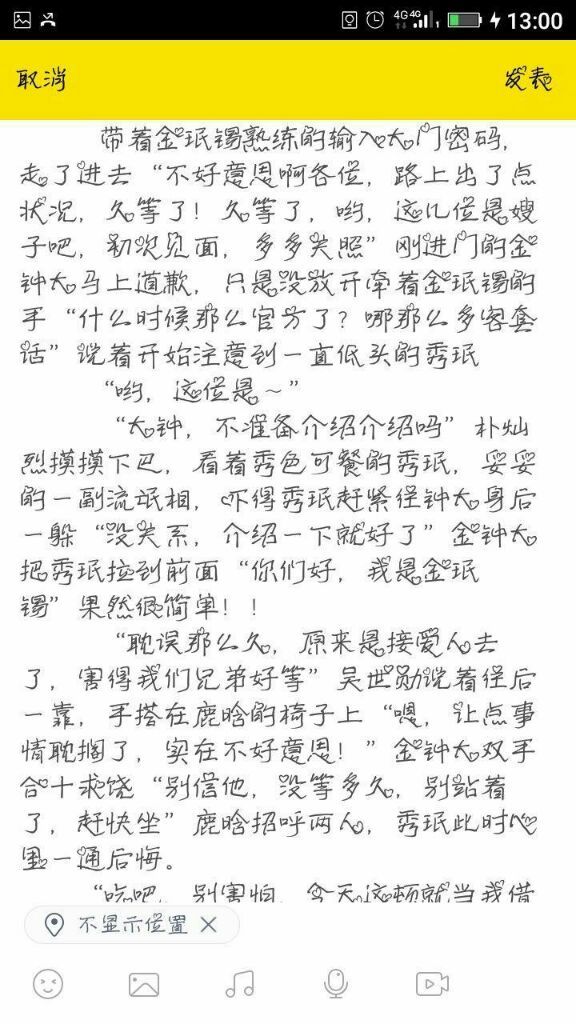 4G 4G 13:00
取消 发表
带着金珉锡熟练的输入大门密码，
走了进去“不好意思啊各位，路上出了点
状况，久等了！久等了，哟，这几位是嫂
子吧，初次见面，多多关照”刚进门的金
钟大马上道歉，只是没放开牵着金珉锡的
手“什么时候那么官方了？哪那么多客套
话”说着开始注意到一直低头的秀珉
“哟，这位是～”
“大钟，不准备介绍介绍吗”朴灿
烈摸摸下巴，看着秀色可餐的秀珉，妥妥
的一副流氓相，吓得秀珉赶紧往钟大身后
一躲“没关系，介绍一下就好了”金钟大
把秀珉拉到前面“你们好，我是金珉
锡”果然很简单！！
“耽误那么久，原来是接爱人去
了，害得我们兄弟好等”吴世勋说着往后
一靠，手搭在鹿晗的椅子上“嗯，让点事
情耽搁了，实在不好意思！”金钟大双手
合十求饶“别信他，没等多久，别站着
了，赶快坐”鹿晗招呼两人，秀珉此时心
里一通后悔。
“吃吧，别害怕，今天这顿就当我借
不显示位置